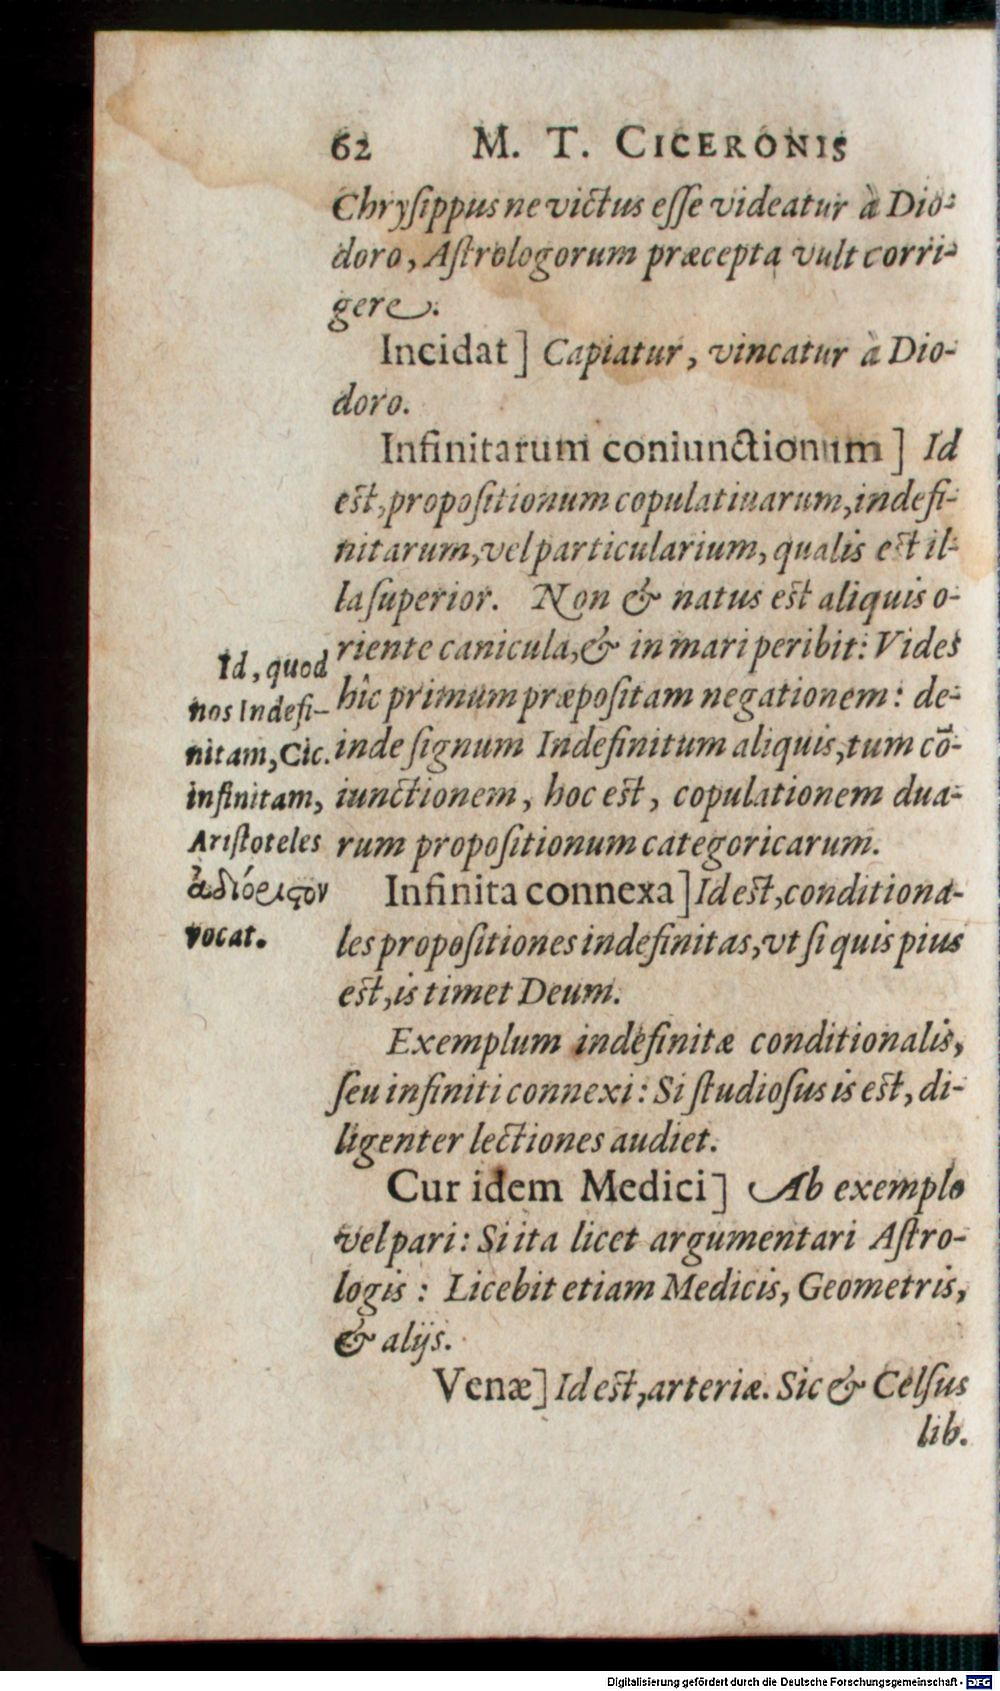 62 M. T. CICERONIS
Chryſippus ne victus eſſe videatur à Dio-
doro, Aſtrologorum præcepta vult corri-
gere.
Incidat] Capiatur, vincatur à Dio-
doro.
Infinitarum coniunctionum] Id
eſt, propoſitionum copulatiuarum, indefi-
nitarum, vel particularium, qualis eſt il-
la ſuperior. Non & natus eſt aliquis o-
riente canicula, & in mari peribit: Vides
hîc primum præpoſitam negationem: de-
inde ſignum Indefinitum aliquis, tum cō-
iunctionem, hoc eſt, copulationem dua-
rum propoſitionum categoricarum.
Id, quod
nos Indefi-
nitam, Cic.
infinitam,
Ariſtoteles
ἀδιόριςον
vocat.
Infinita connexa] Id eſt, conditiona-
les propoſitiones indefinitas, vt ſi quis pius
eſt, is timet Deum.
Exemplum indefinitæ conditionalis,
ſeu infiniti connexi: Si ſtudioſus is eſt, di-
ligenter lectiones audiet.
Cur idem Medici] Ab exemplo
vel pari: Si ita licet argumentari Aſtro-
logis: Licebit etiam Medicis, Geometris,
& alijs.
Venæ] Id eſt, arteriæ. Sic & Celſus
lib.
Digitalisierung gefördert durch die Deutsche Forschungsgemeinschaft - DFG